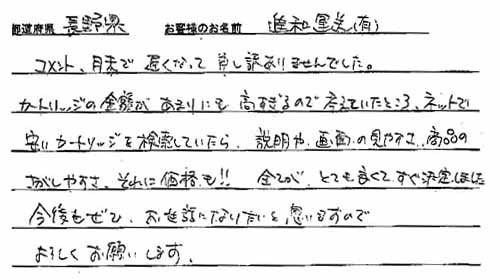 都道府県 長野県 お客様のお名前 進和運送(有)
コメント、月末で 遅くなって 申し訳ありませんでした。
カートリッジの金額が あまりにも 高すぎるので 考えていたところ、ネットで
安いカートリッジを検索していたら、説明や、画面の見やすさ、商品の
さがしやすさ、それに価格も!! 全てが、とても良くて、すぐ決定しました
今後もぜひ、お世話になりたいと思いますので
よろしくお願いします。